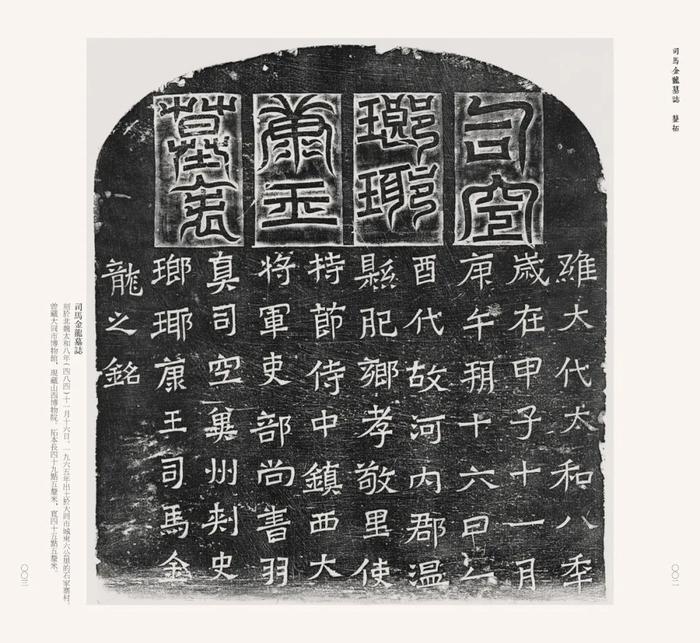 司馬金龍墓誌 整拓
〇〇二
司空
瑯琊
康王
墓表
維大代太和八年
歲在甲子十一月
庚午朔十六日乙
酉代故河內郡溫
縣肥鄉孝敬里使
持節侍中鎮西大
將軍吏部尚書羽
真司空冀州刺史
瑯琊康王司馬金
龍之銘
司馬金龍墓誌
刻於北魏太和八年（四八四）十一月十六日。一九六五年出土於大同市城東六公里的石家寨村，
曾藏大同市博物館，現藏山西博物院。拓本長四十九點五釐米，寬四十五點五釐米。
〇〇三